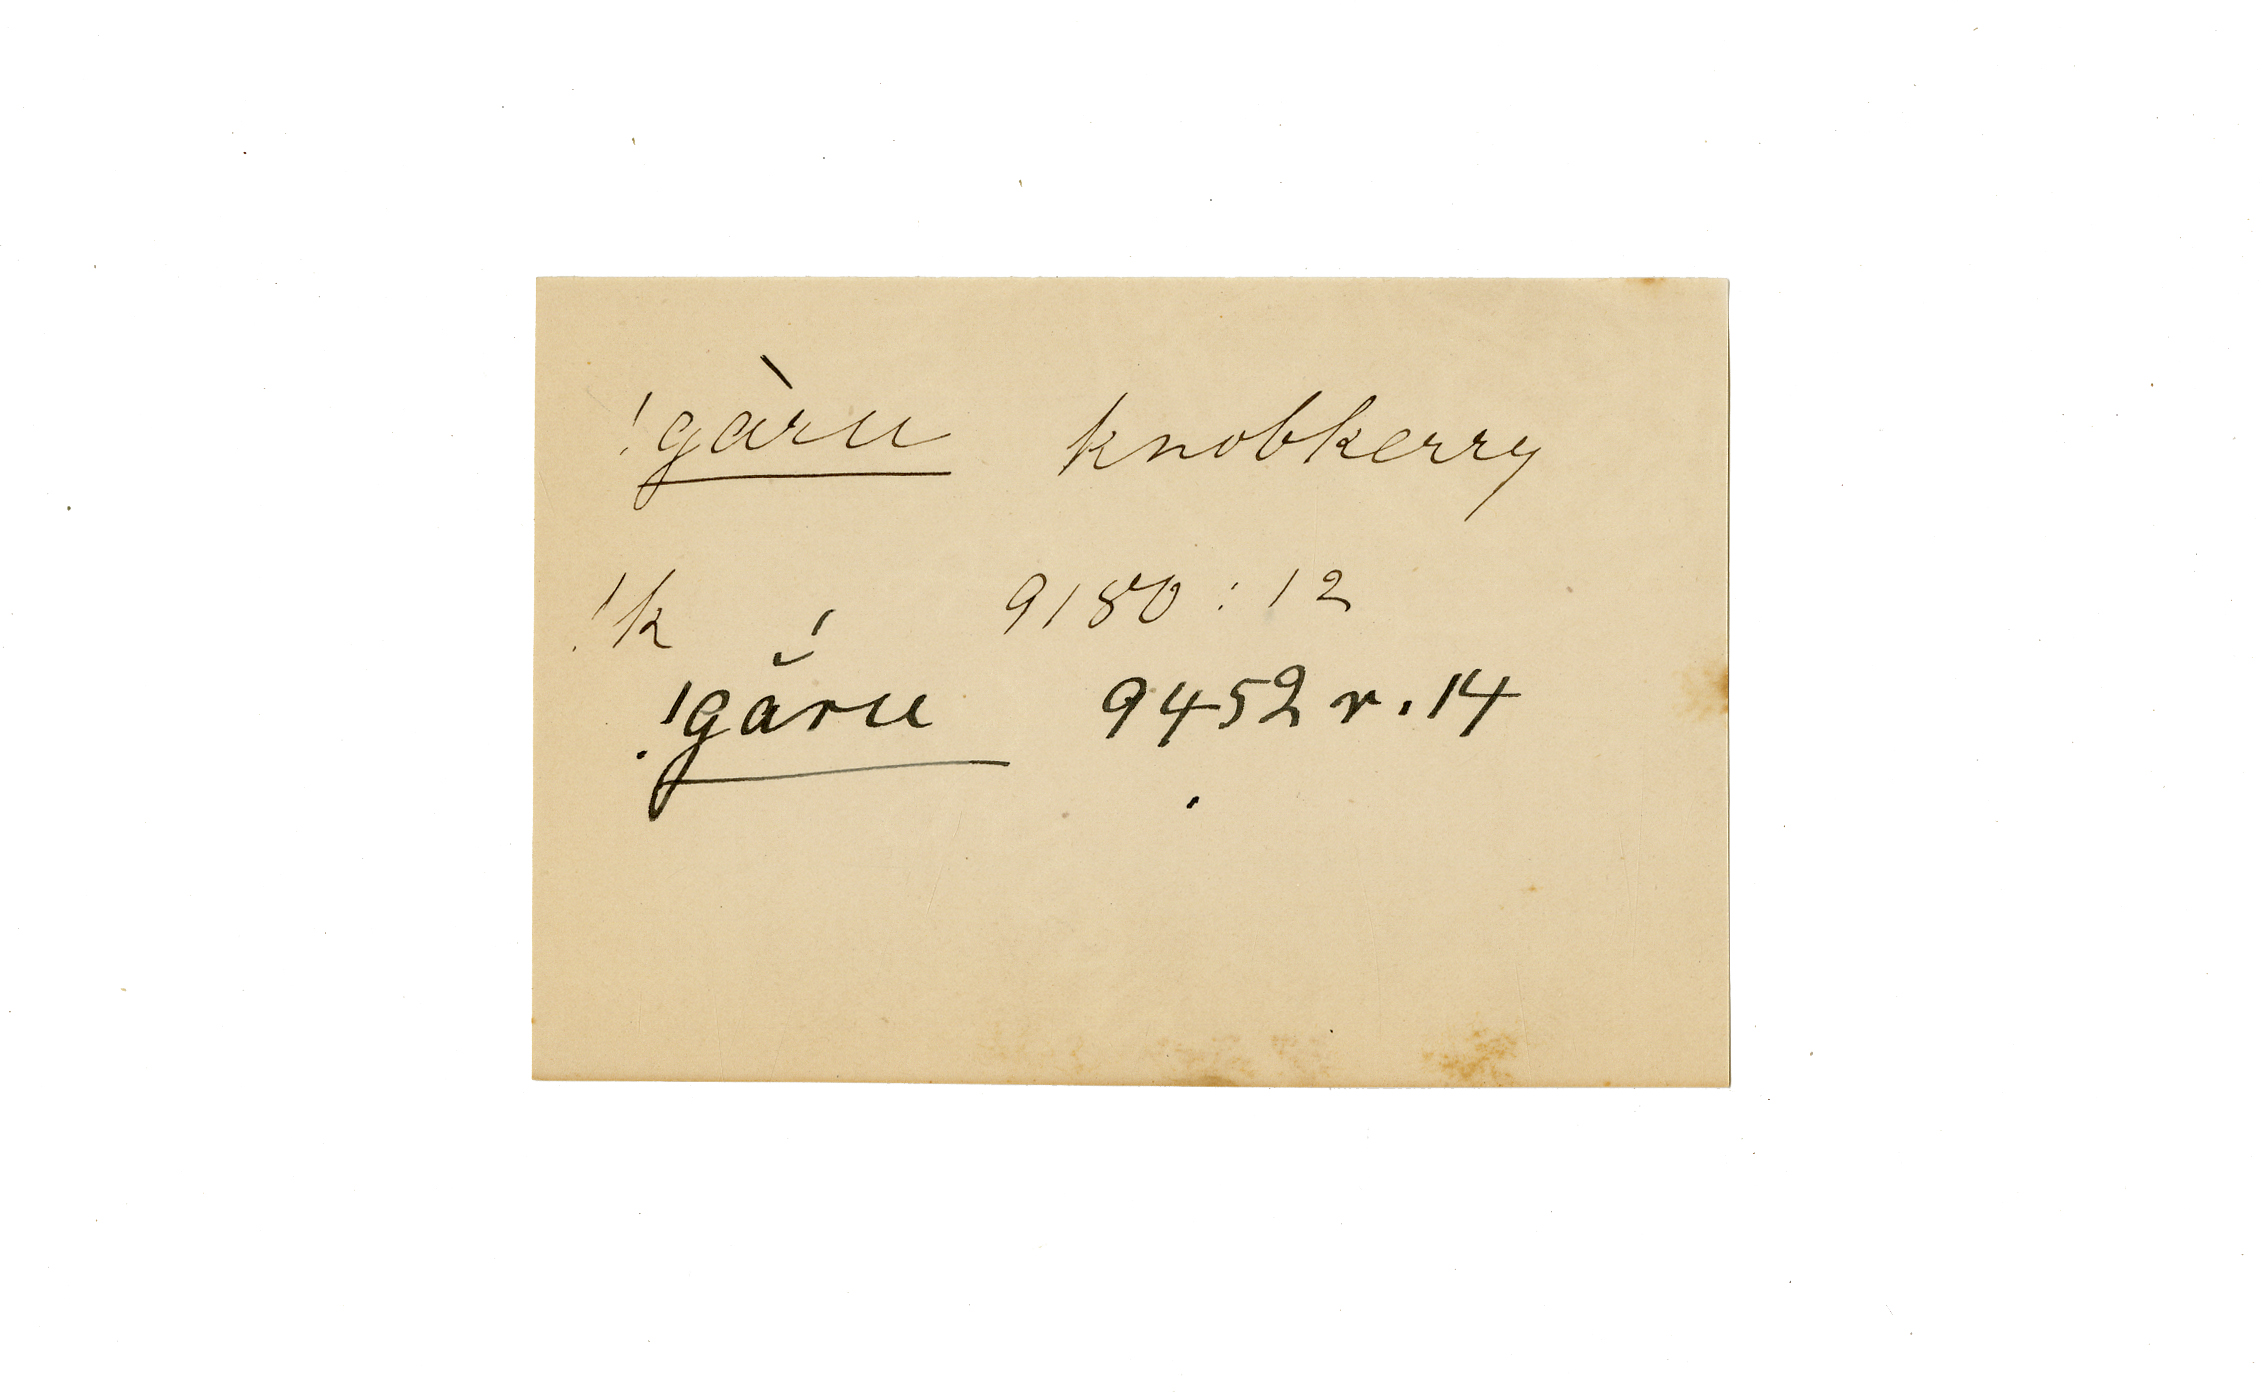 !gàru knobkerry
!k 9180 : 12
!gā̆́ru 9452 r. 14